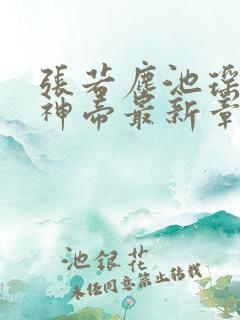 張若塵池瑤
神帝最新章
池銀花
未經同意禁止轉載